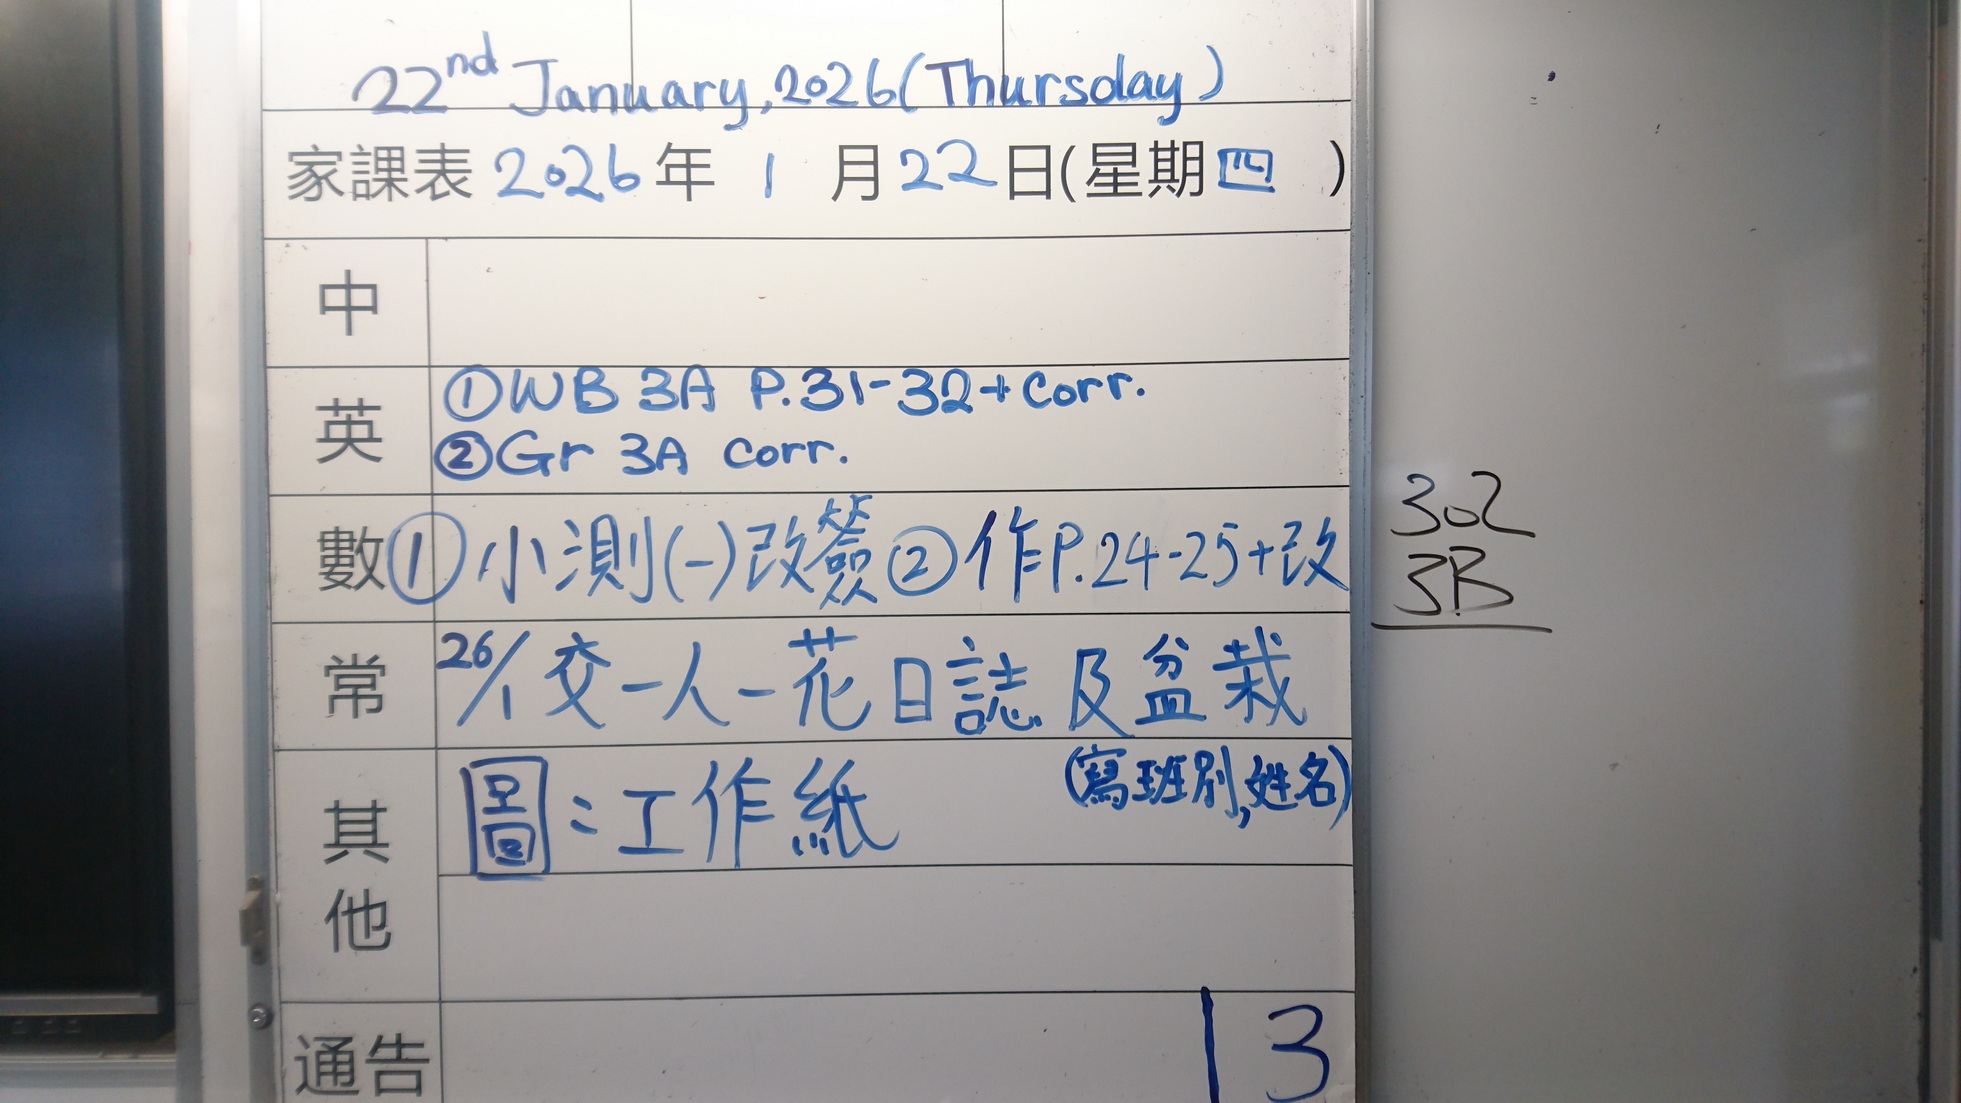 22nd January, 2026 (Thursday)
家課表 2026 年 1 月 22 日(星期四)
中
英 ①WB 3A P.31-32+corr.
②Gr 3A corr.
數 ①小測(一)改簽 ②作P.24-25+改
常 26/1 交一人一花日誌及盆栽
(寫班別,姓名)
其他 圖:工作紙
通告 13
302
3B